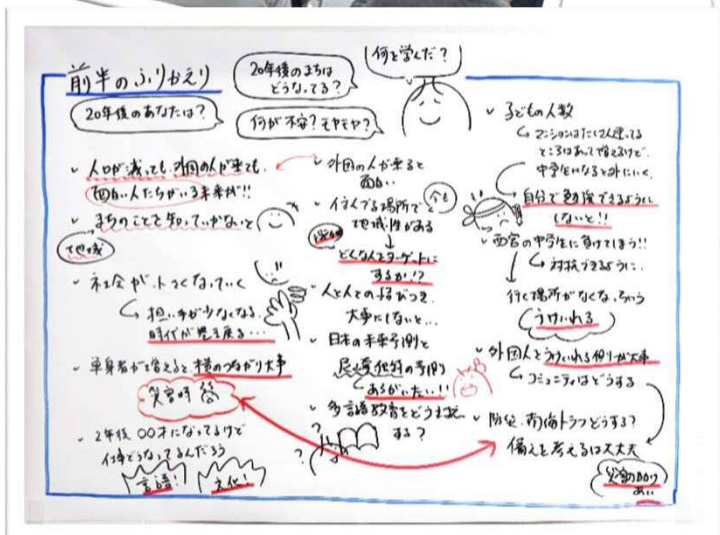 前半のふりかえり
20年後のまちは
どうなってる？
何を学んだ？
20年後のあなたは？
何が不安？モヤモヤ？
人口が減っても、外国の人が来ても、
面白い人たちがいる未来が!!
まちのことを知っていかないと
地域
社会が小さくなっていく
担い手が少なくなる
時代が巻き戻る…
単身者が増えると横のつながり大事
災害時
2年後 〇〇才になってるけど
仕事どうなってるんだろう
言語！
文化！
外国の人が来ると
面白い
住んでる場所で
地域性がある
今も
どんな人をターゲットに
するか!?
人と人との結びつき
大事にしないと…
日本の未来予測と
あるがいたい!!
多言語教育をどう
する？
子どもの人数
マンションはたくさん建ってる
ところはあって増えるけど、
中学生になると外にいく、
自分で勉強できるように
しないと!!
西宮の中学生に負けてしまう!!
対抗できるように、
行く場所がなくなっちゃう
うけいれる
外国人をうけいれる側が大事
コミュニティはどうする
防災、南海トラフどうする？
備えを考えるは大丈夫